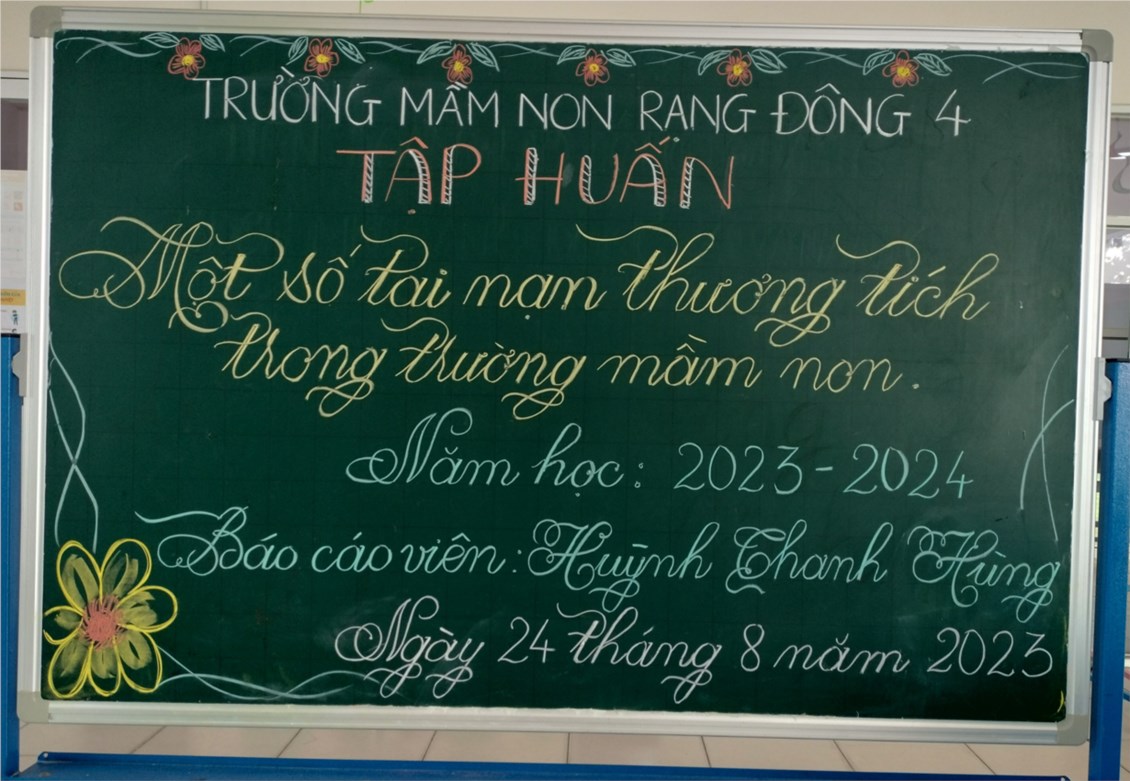 TRƯỜNG MẦM NON RẠNG ĐÔNG 4
TẬP HUẤN
Một số tai nạn thương tích
trong trường mầm non.
Năm học: 2023-2024
Báo cáo viên: Huỳnh Thanh Hùng
Ngày 24 tháng 8 năm 2023